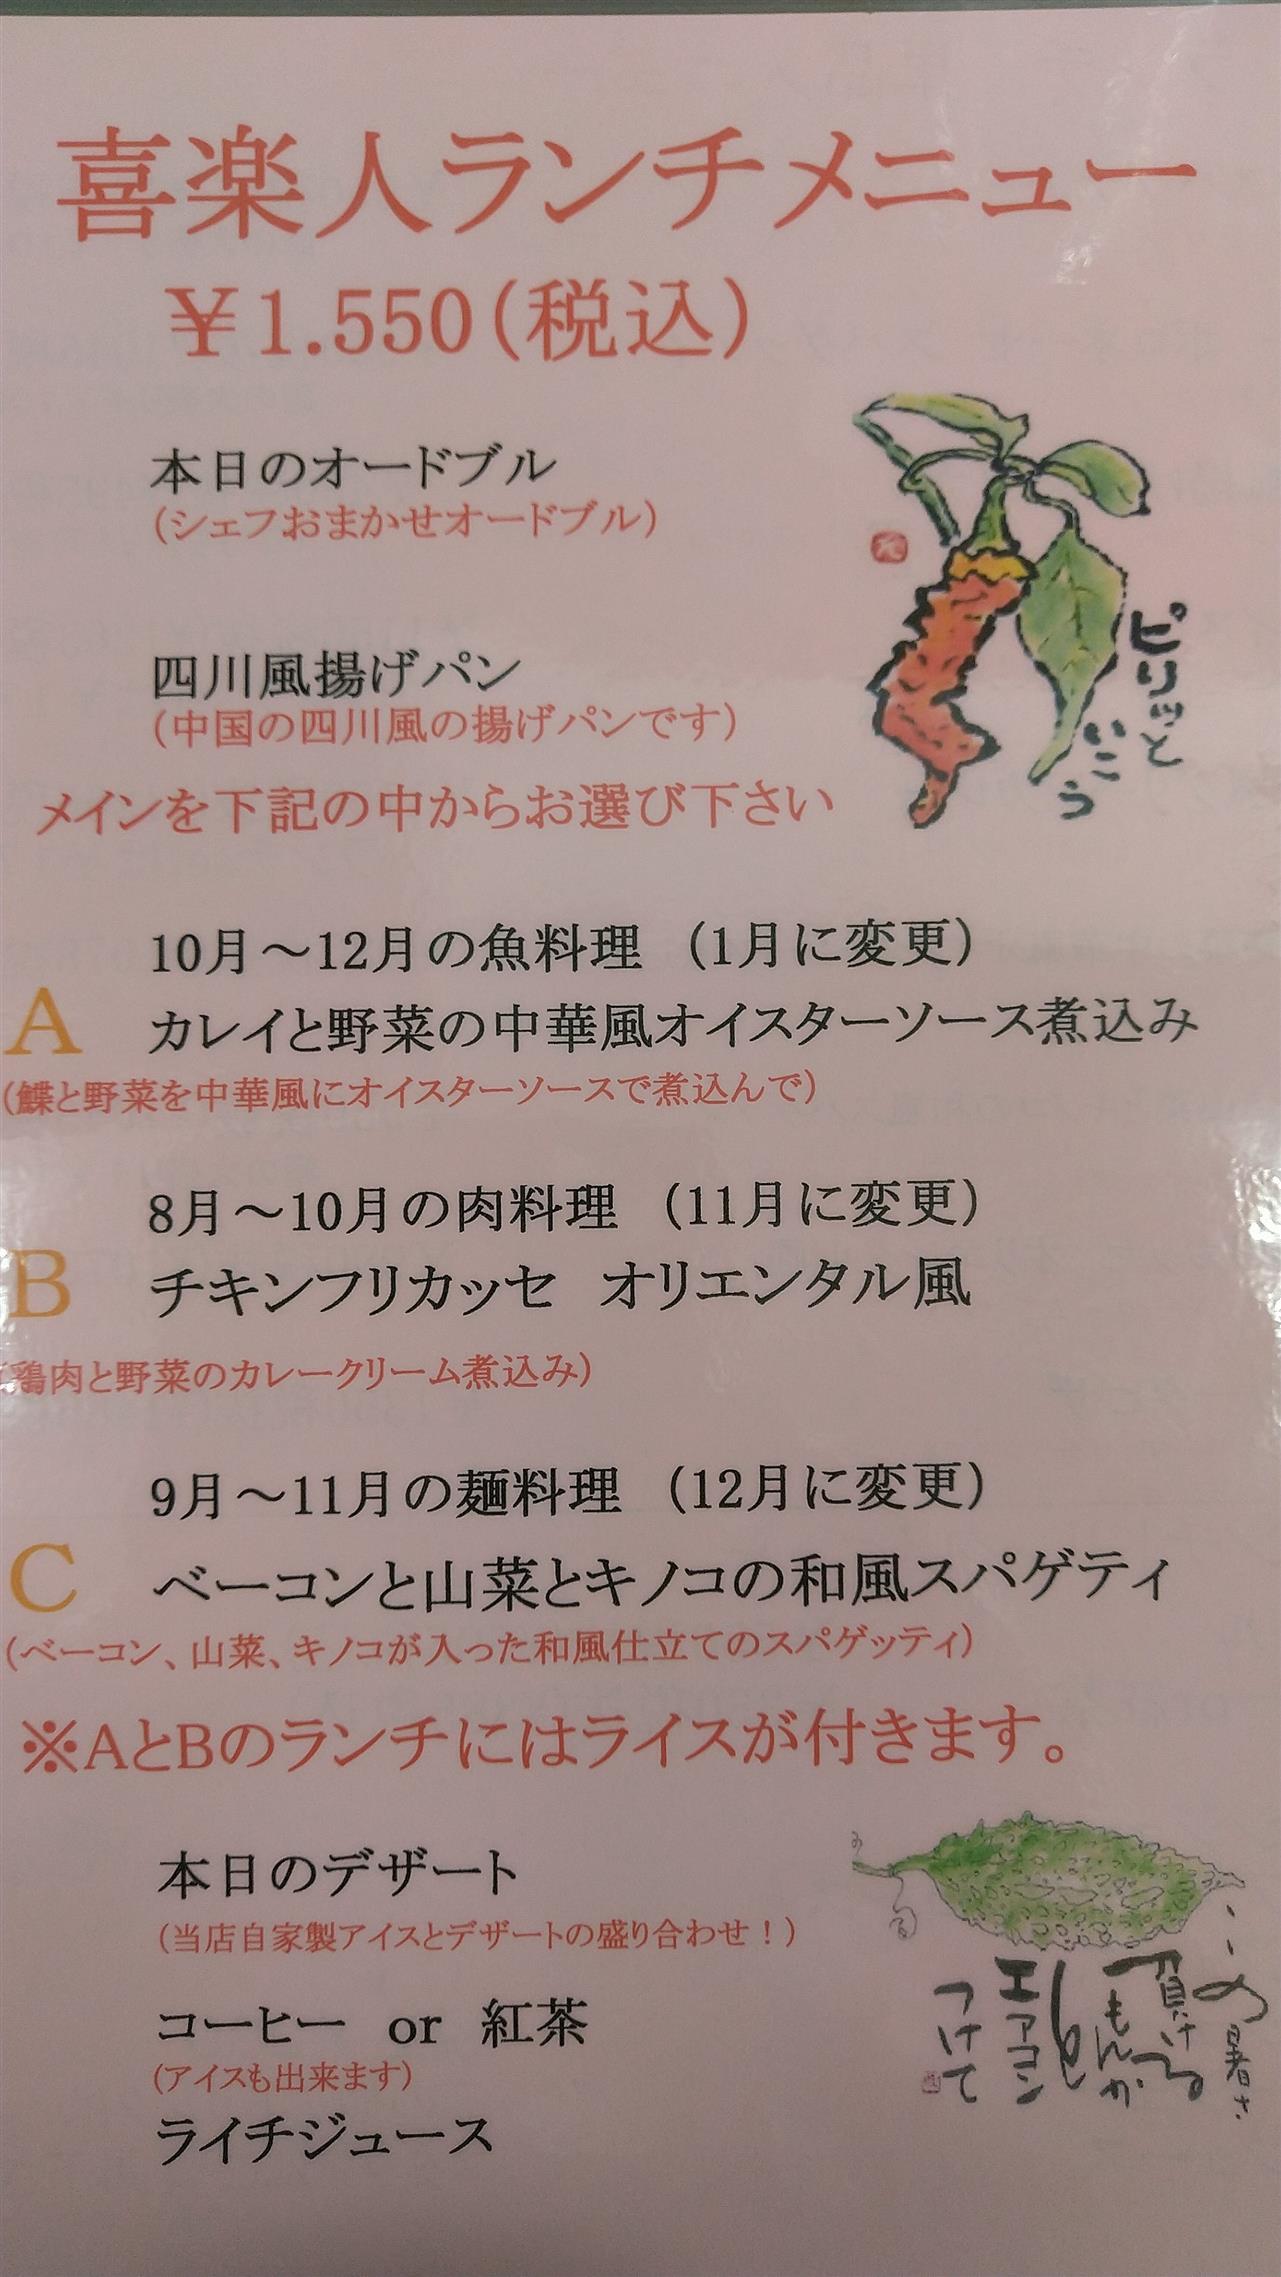 喜楽人ランチメニュー
￥1.550(税込)
本日のオードブル
(シェフおまかせオードブル)
四川風揚げパン
(中国の四川風の揚げパンです)
ピリッと
いこう
メインを下記の中からお選び下さい
10月～12月の魚料理 (1月に変更)
A カレイと野菜の中華風オイスターソース煮込み
(鰈と野菜を中華風にオイスターソースで煮込んで)
8月～10月の肉料理 (11月に変更)
B チキンフリカッセ オリエンタル風
(鶏肉と野菜のカレークリーム煮込み)
9月～11月の麺料理 (12月に変更)
C ベーコンと山菜とキノコの和風スパゲティ
(ベーコン、山菜、キノコが入った和風仕立てのスパゲッティ)
※AとBのランチにはライスが付きます。
本日のデザート
(当店自家製アイスとデザートの盛り合わせ！)
コーヒー or 紅茶
(アイスも出来ます)
ライチジュース
この暑さ
負ける
もんか
エアコン
つけて